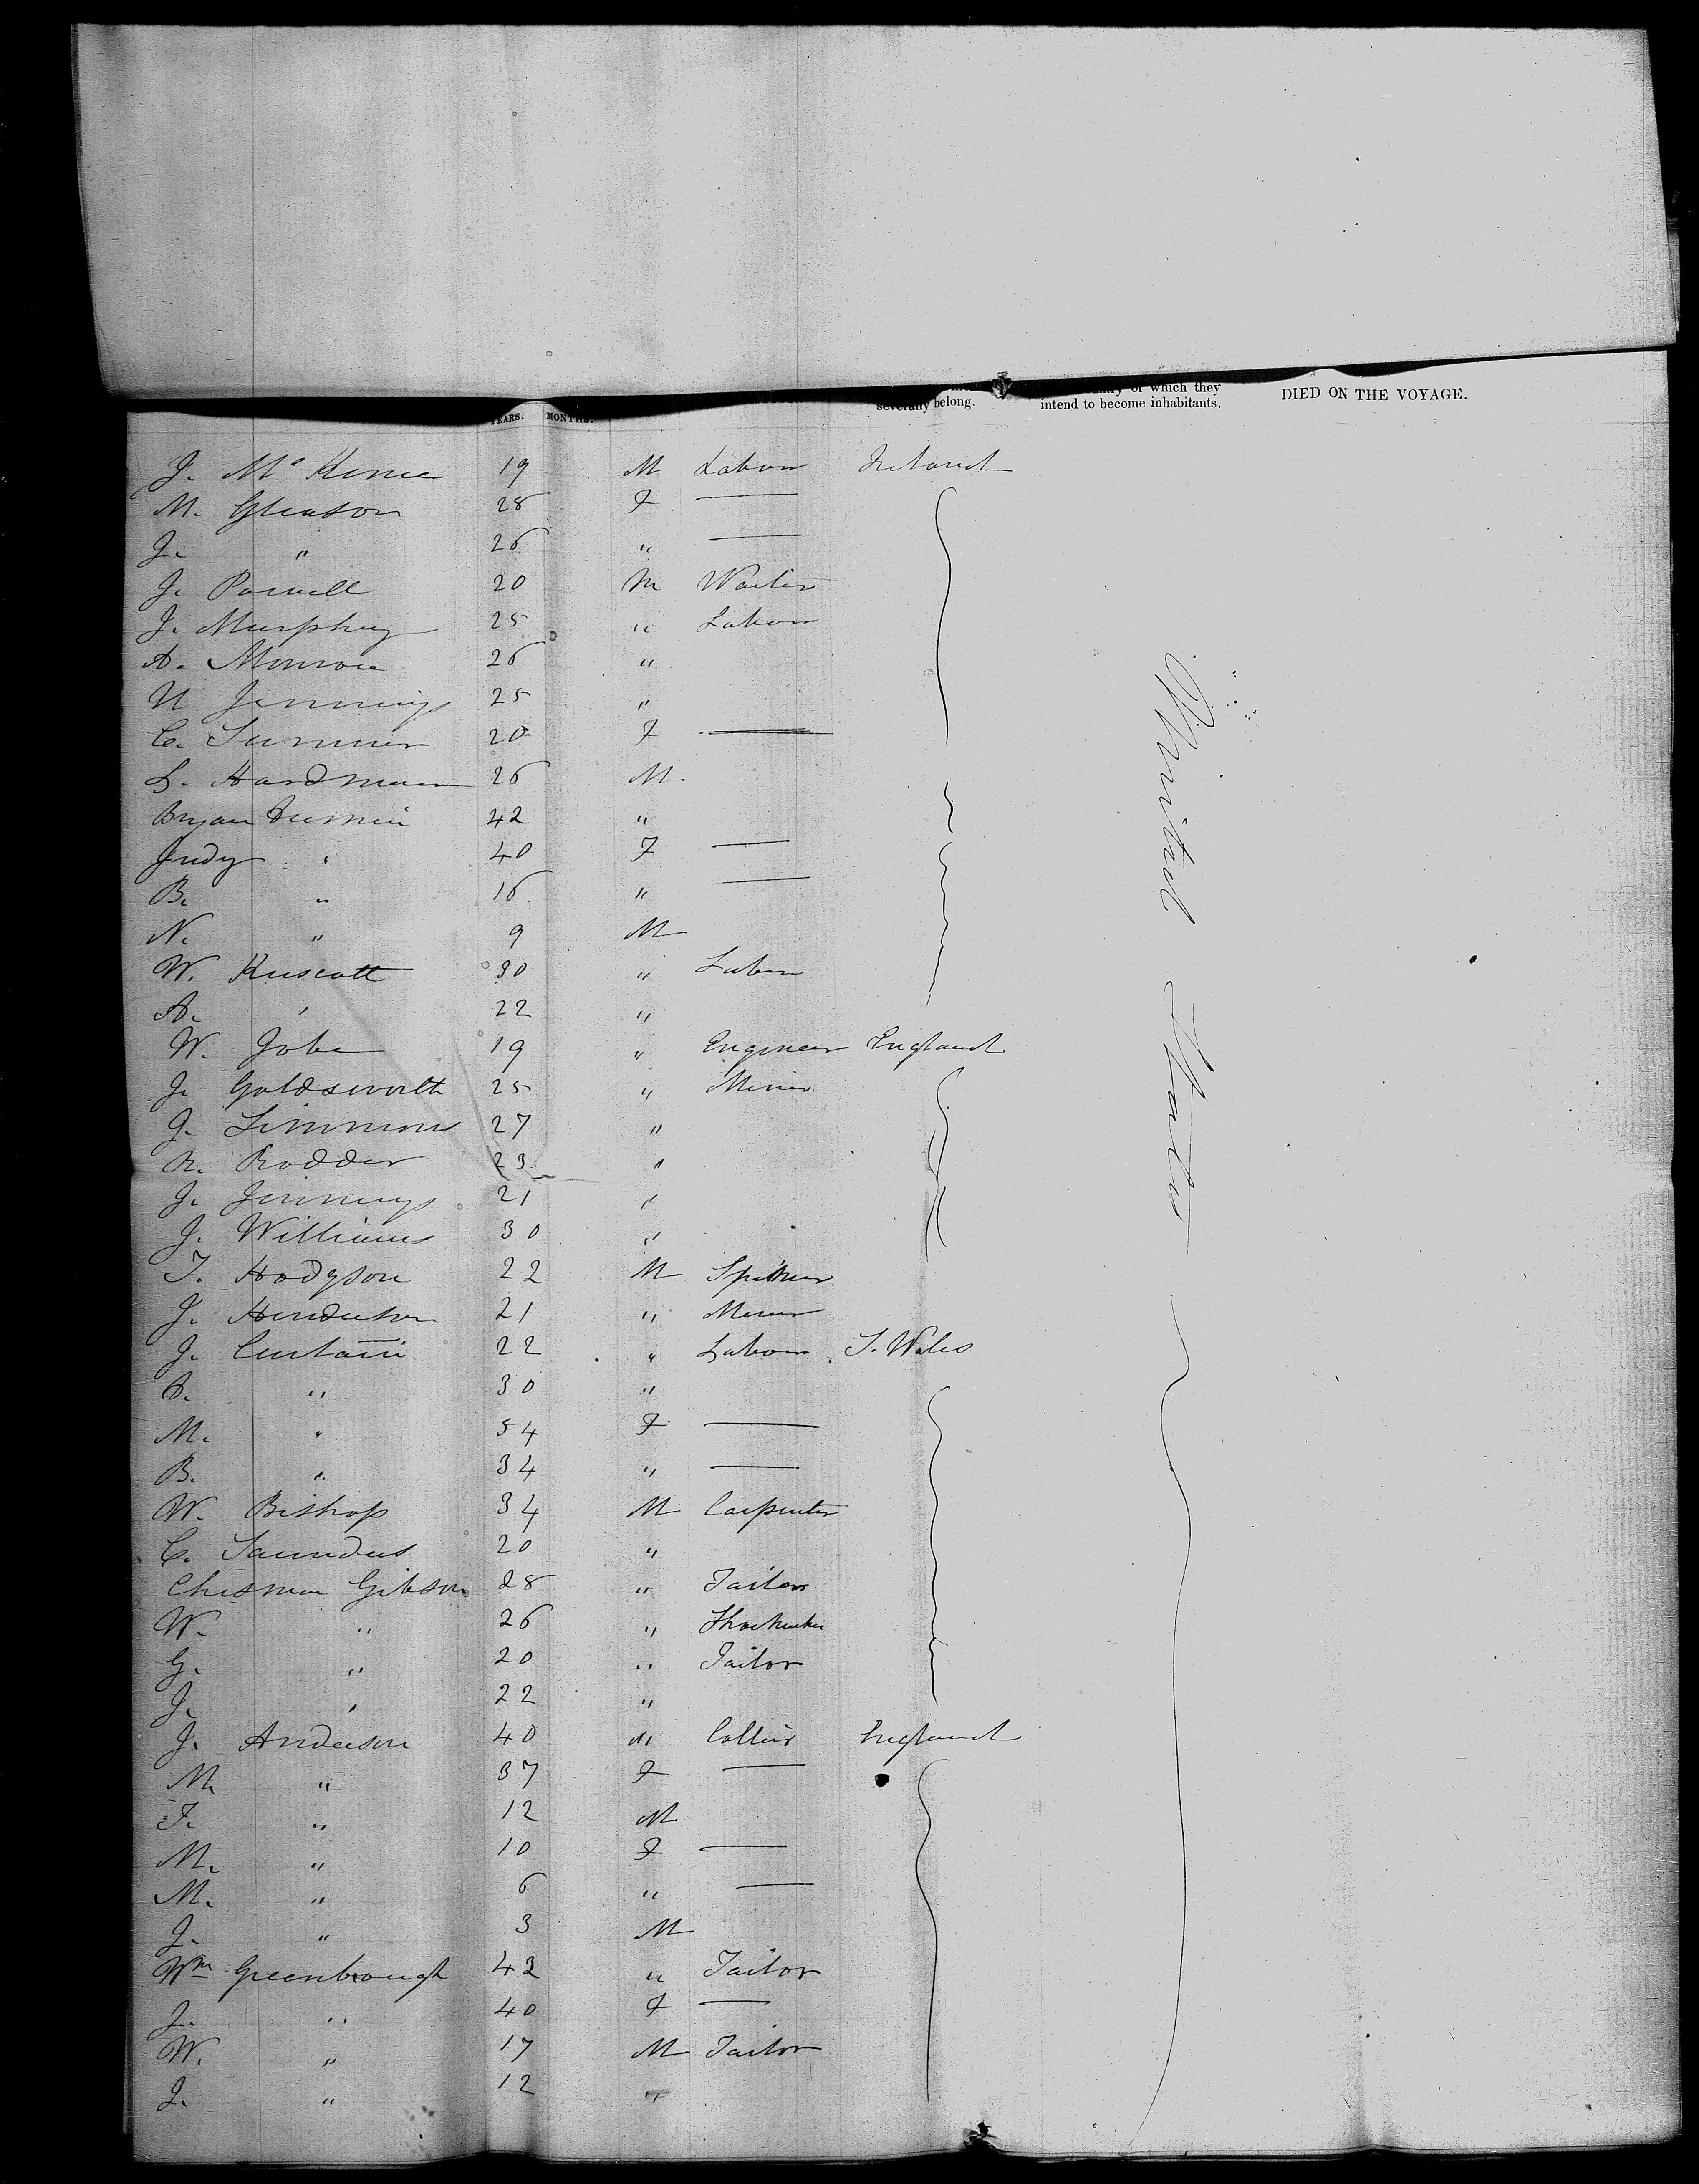 which they
severally belong. intend to become inhabitants. DIED ON THE VOYAGE.
YEARS. MONTHS.
J. Mc Kenne 19 M Labour Ireland
M. Gleason 28 F —
J. " 26 " —
J. Powell 20 M Waiter
J. Murphy 25 " Labour
A. Monroe 26 "
Jennings 25 "
C. Summer 20 F —
S. Hardman 26 M
Bryan 42 "
Judy " 40 F —
B. " 16 " —
N. " 9 M
W. Kuscott 30 " Labour
A. " 22 "
W. Jobe 19 " Engineer England
J. Goldsworth 25 " Miner
J. Simmons 27 "
R. Rodder 23 "
J. Jennings 21 "
J. Williams 30 "
T. Hodgson 22 M Spinner
J. Henderson 21 " Miner
J. Curtain 22 " Labour S. Wales
30 "
M. " 54 F —
B. " 34 " —
W. Bishop 34 M Carpenter
C. Saunders 20 "
Chisman Gibson 28 " Tailor
W. " 26 " Shoemaker
G. " 20 " Tailor
J. " 22 "
J. Anderson 40 " Collier England
M. " 37 F —
T. " 12 M
M. " 10 F —
M. " 6 " —
J. " 3 M
Wm Greenbrough 42 " Tailor
J. " 40 F —
W. " 17 M Tailor
J. " 12 "
United States